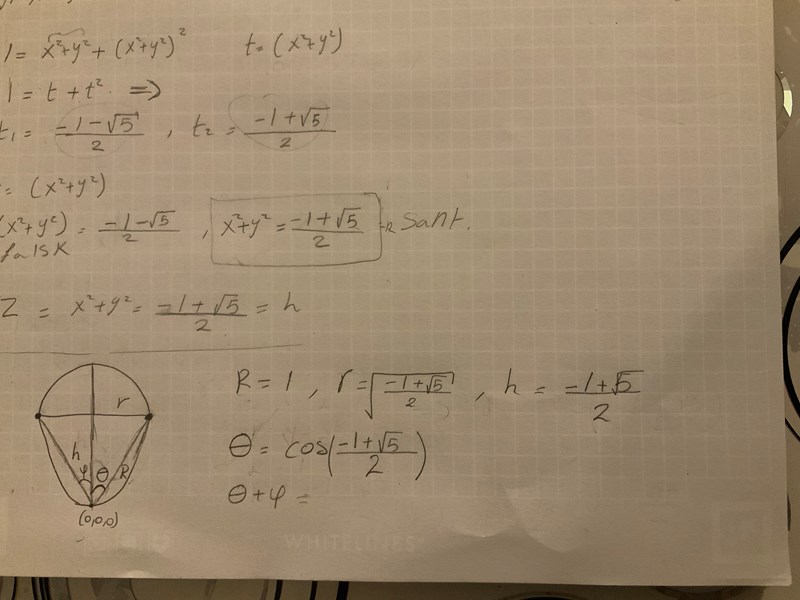 1 = x²+y² + (x²+y²)² t = (x²+y²)
1 = t + t² ⇒
t₁ = (-1-√5)/2 , t₂ = (-1+√5)/2
= (x²+y²)
(x²+y²) = (-1-√5)/2 , x²+y² = (-1+√5)/2 Sant.
falsk
Z = x²+y² = (-1+√5)/2 = h
R = 1 , r = √((-1+√5)/2) , h = (-1+√5)/2
r
θ = cos((-1+√5)/2)
h φ θ R
θ+φ =
(0,0,0)
WHITELINES